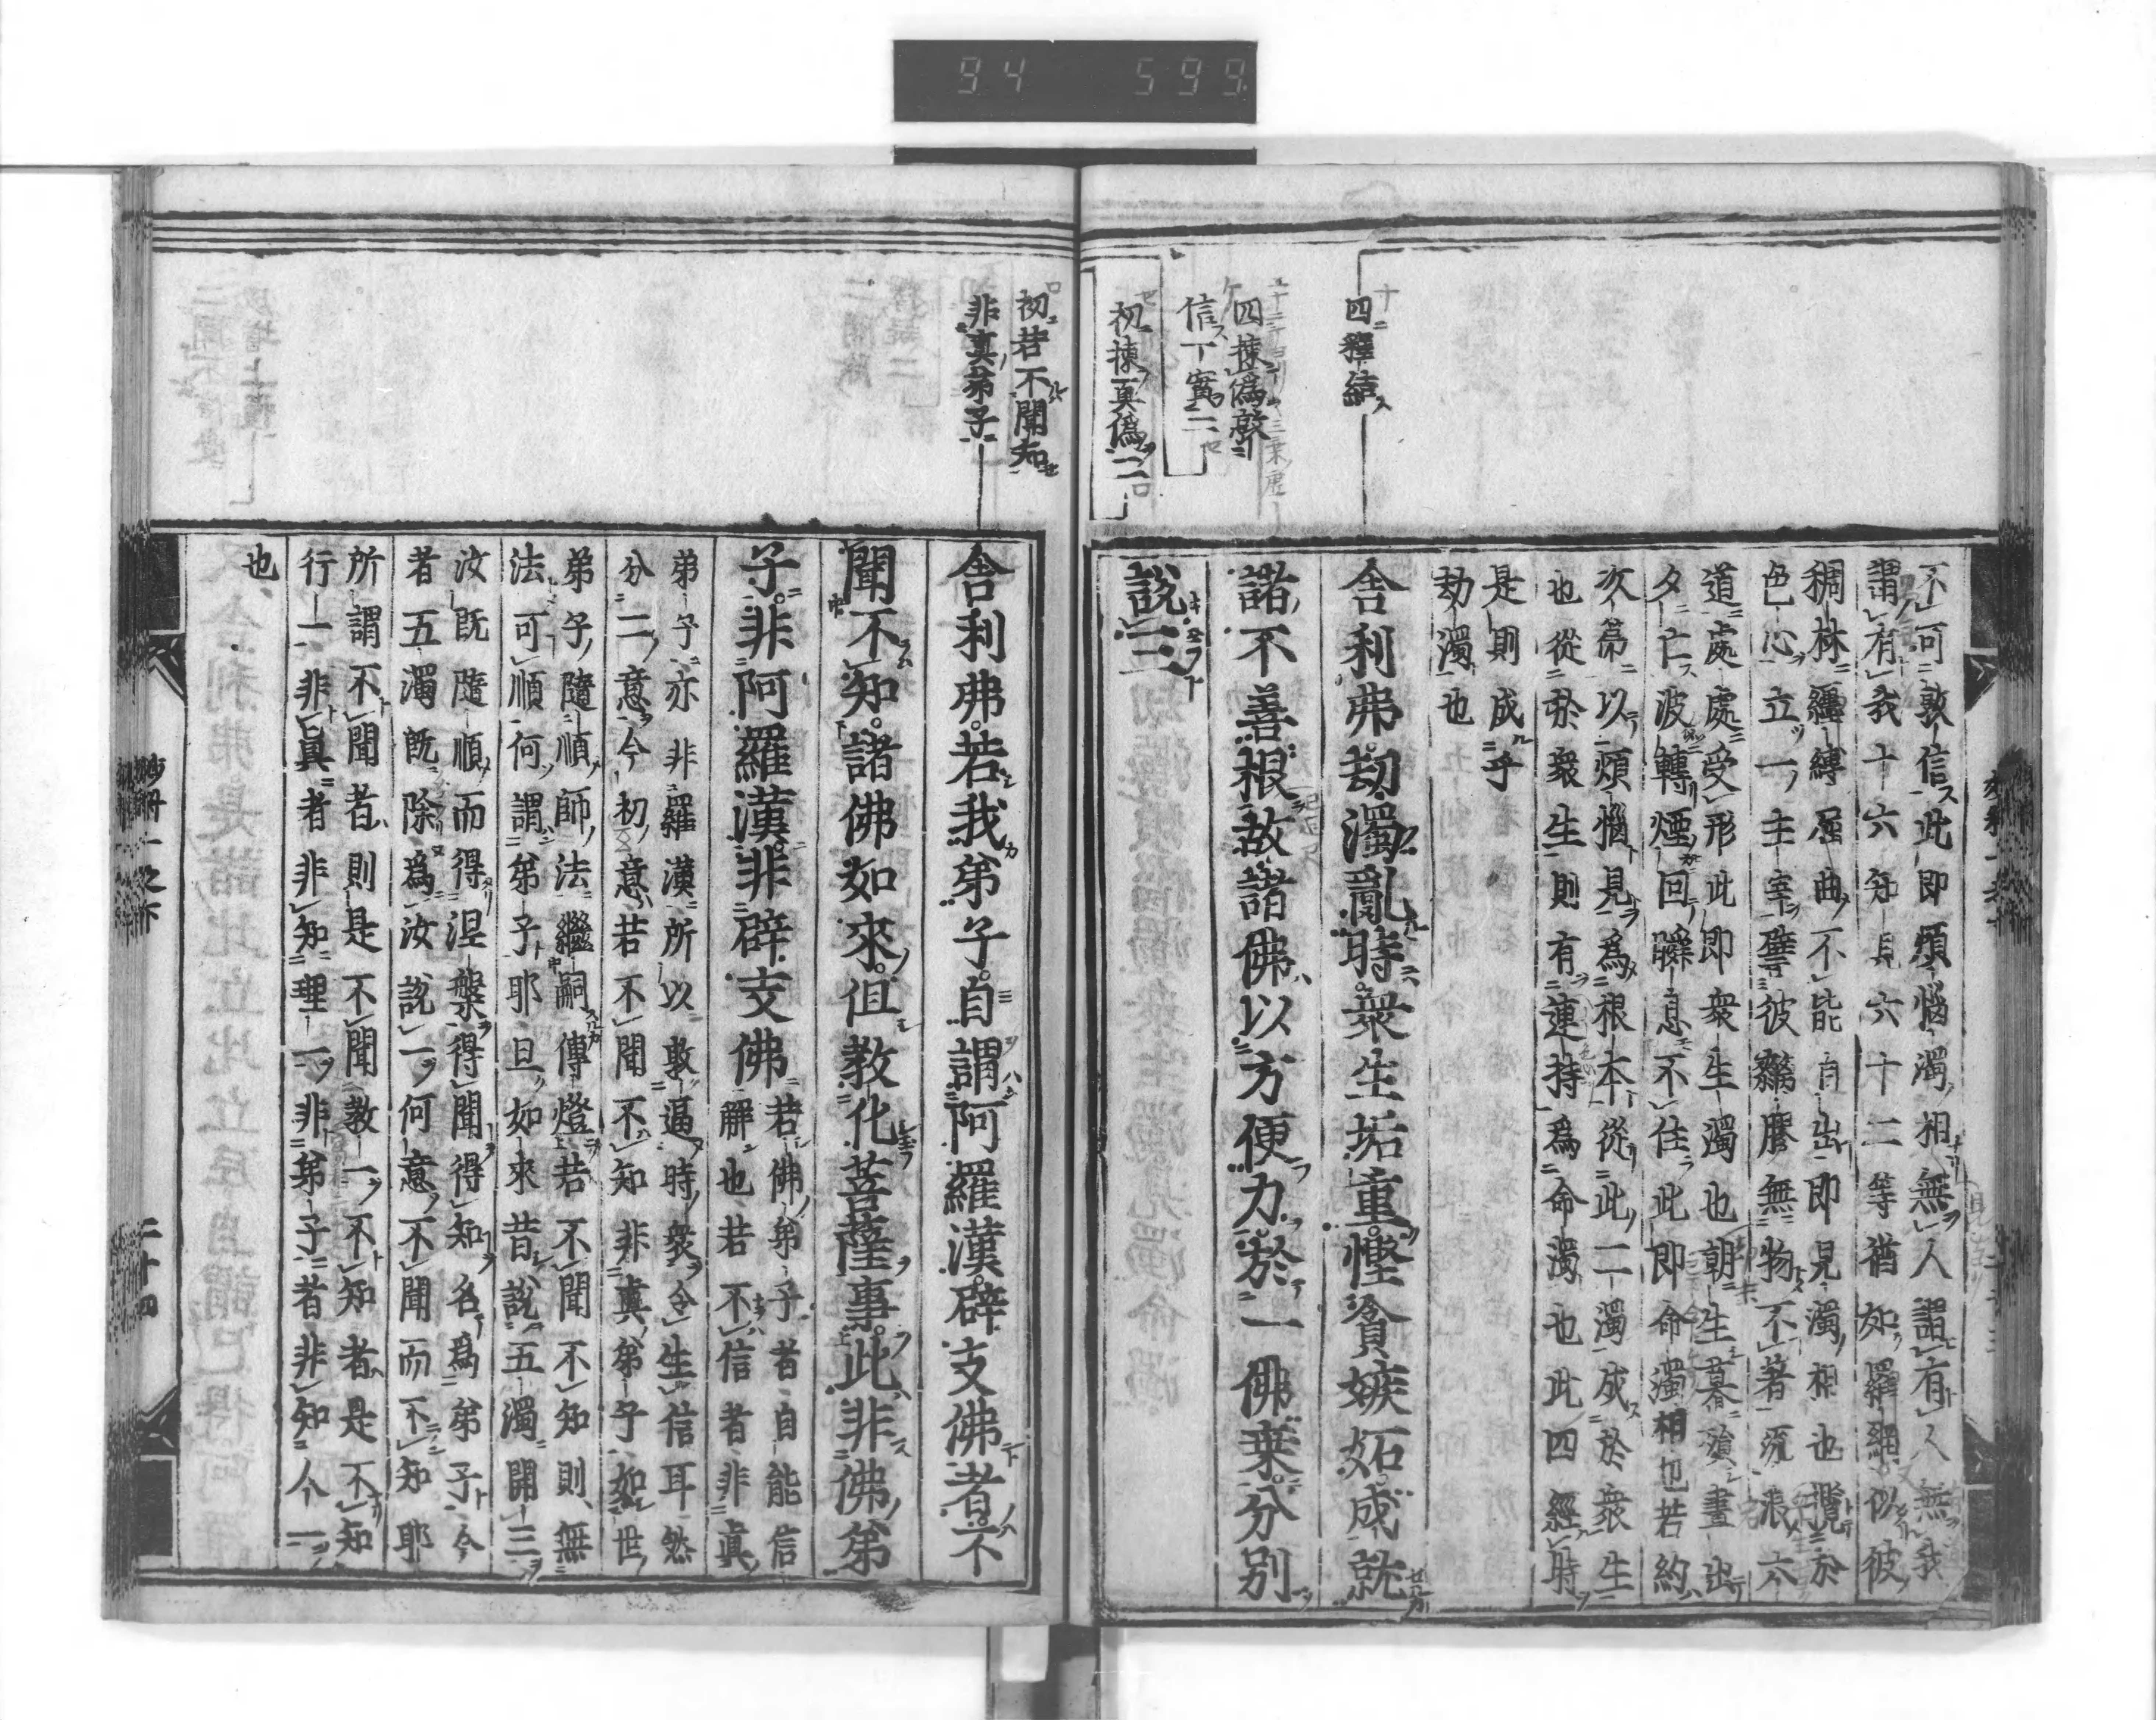 94 599
四釋結
四揀偽敦
信丁實二
初揀真偽二
不可敦信此即煩惱濁相無人謂有人無我
謂有我十六知見六十二等猶如羅網又似彼
稠林纏縛屈曲不能自出即見濁相也攬於
色心立一主宰譬彼黐膠無物不著流浪六
道處處受形此即衆生濁也朝生暮殞晝出
夕亡波轉煙回瞬息不住此即命濁相也若約
次第以煩惱見為根本從此二濁成於衆生
也從於衆生則有連持為命濁也此四經時
是則成乎
劫濁也
舍利弗劫濁亂時衆生垢重慳貪嫉妬成就
諸不善根故諸佛以方便力於一佛乗分別
說三
初若不聞知
非真弟子
舍利弗若我弟子自謂阿羅漢辟支佛者不
聞不知諸佛如來但教化菩薩事此非佛弟
子非阿羅漢非辟支佛
若佛弟子者自能信
解也若不信者非真
弟子亦非羅漢所以敦逼時衆令生信耳然
分二意今初意若不聞不知非真弟子如世
弟子隨順師法繼嗣傳燈若不聞不知則無
法可順何謂弟子耶且如來昔說五濁開三
汝既隨順而得涅槃得聞得知名為弟子今
者五濁既除為汝說一何意不聞而不知耶
所謂不聞者則是不聞教一不知者是不知
行一非真者非知理一非弟子者非知人一
也
二十四